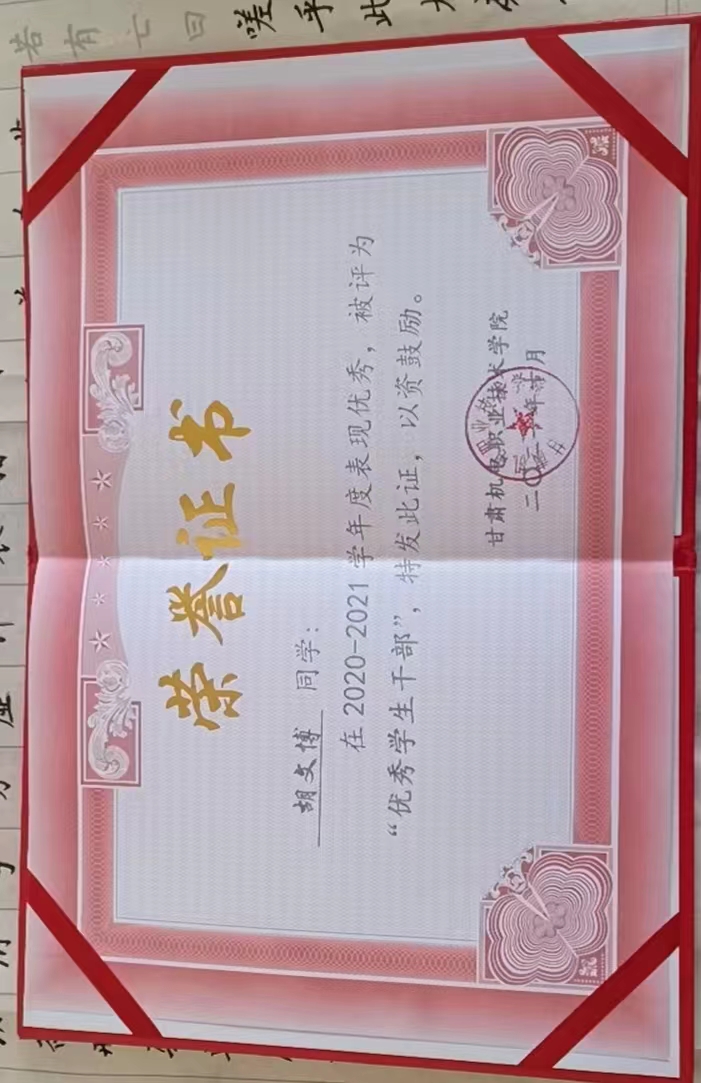 荣誉证书
胡文博 同学：
在2020-2021学年度表现优秀，被评为
“优秀学生干部”，特发此证，以资鼓励。
甘肃机电职业技术学院
若有亡曰嗟乎此